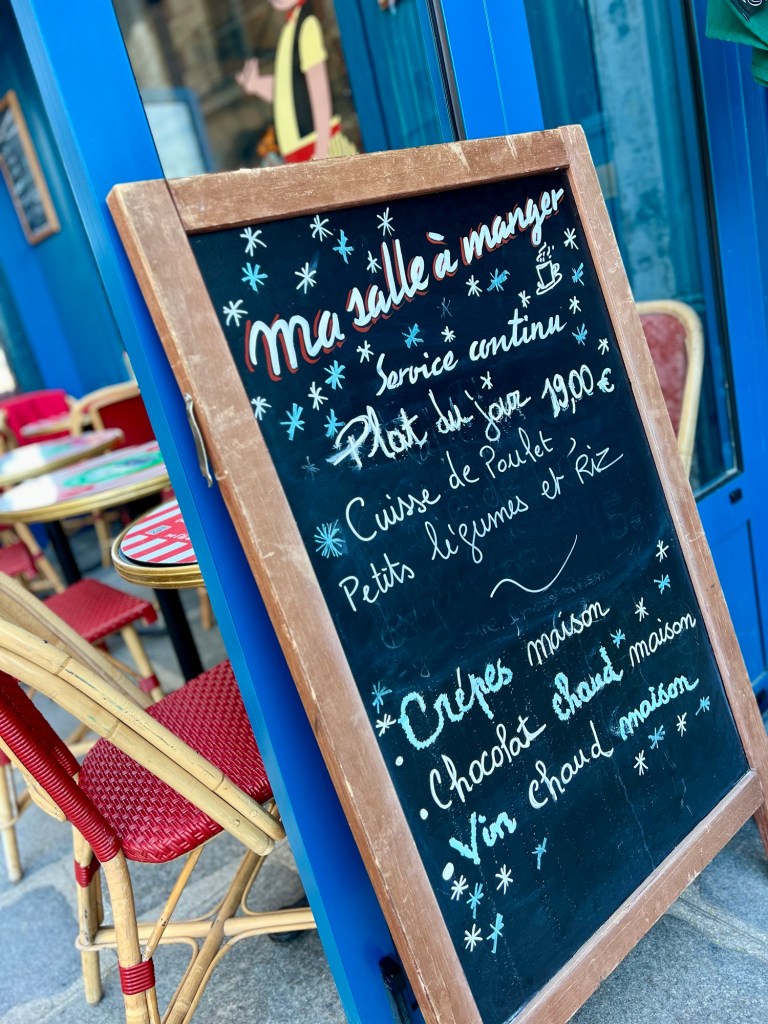 Ma salle à manger
Service continu
Plat du jour 19,00 €
Cuisse de Poulet,
Petits légumes et Riz
• Crêpes maison
• Chocolat chaud maison
• Vin chaud maison